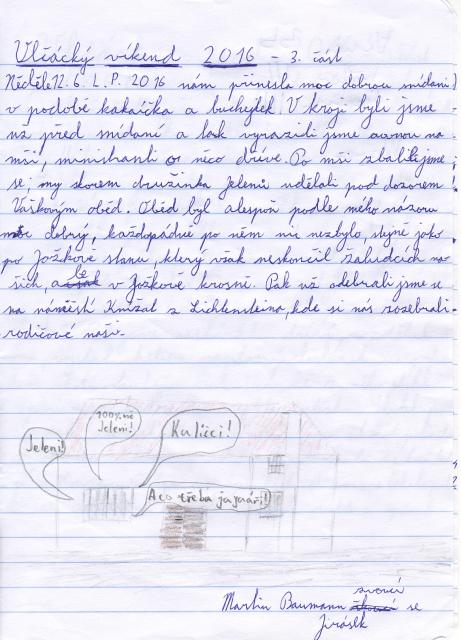 Vlčácký víkend 2016 - 3. část
Neděle 12. 6. L. P. 2016 nám přinesla moc dobrou snídani
v podobě kakaíčka a buchejtek. V kroji byli jsme
už před snídaní a tak vyrazili jsme rovnou na
mši, ministranti o něco dříve. Po mši zbalili jsme
se, my skorem družinka Jelenů udělali pod dozorem
Vaškovým oběd. Oběd byl alespoň podle mého názoru
moc dobrý, každopádně po něm nic nezbylo, stejně jako
po Jožkově stanu, který však neskončil v žaludcích na-
šich, ale v Jožkově krosně. Pak už odebrali jsme se
na náměstí Knížat z Lichtensteina, kde si nás rozebrali
rodičové naši.
Jeleni!
100% ně Jeleni!
Kulíšci!
A co třeba jaguáři!
Martin Baumann zvoucí se
Jirásek